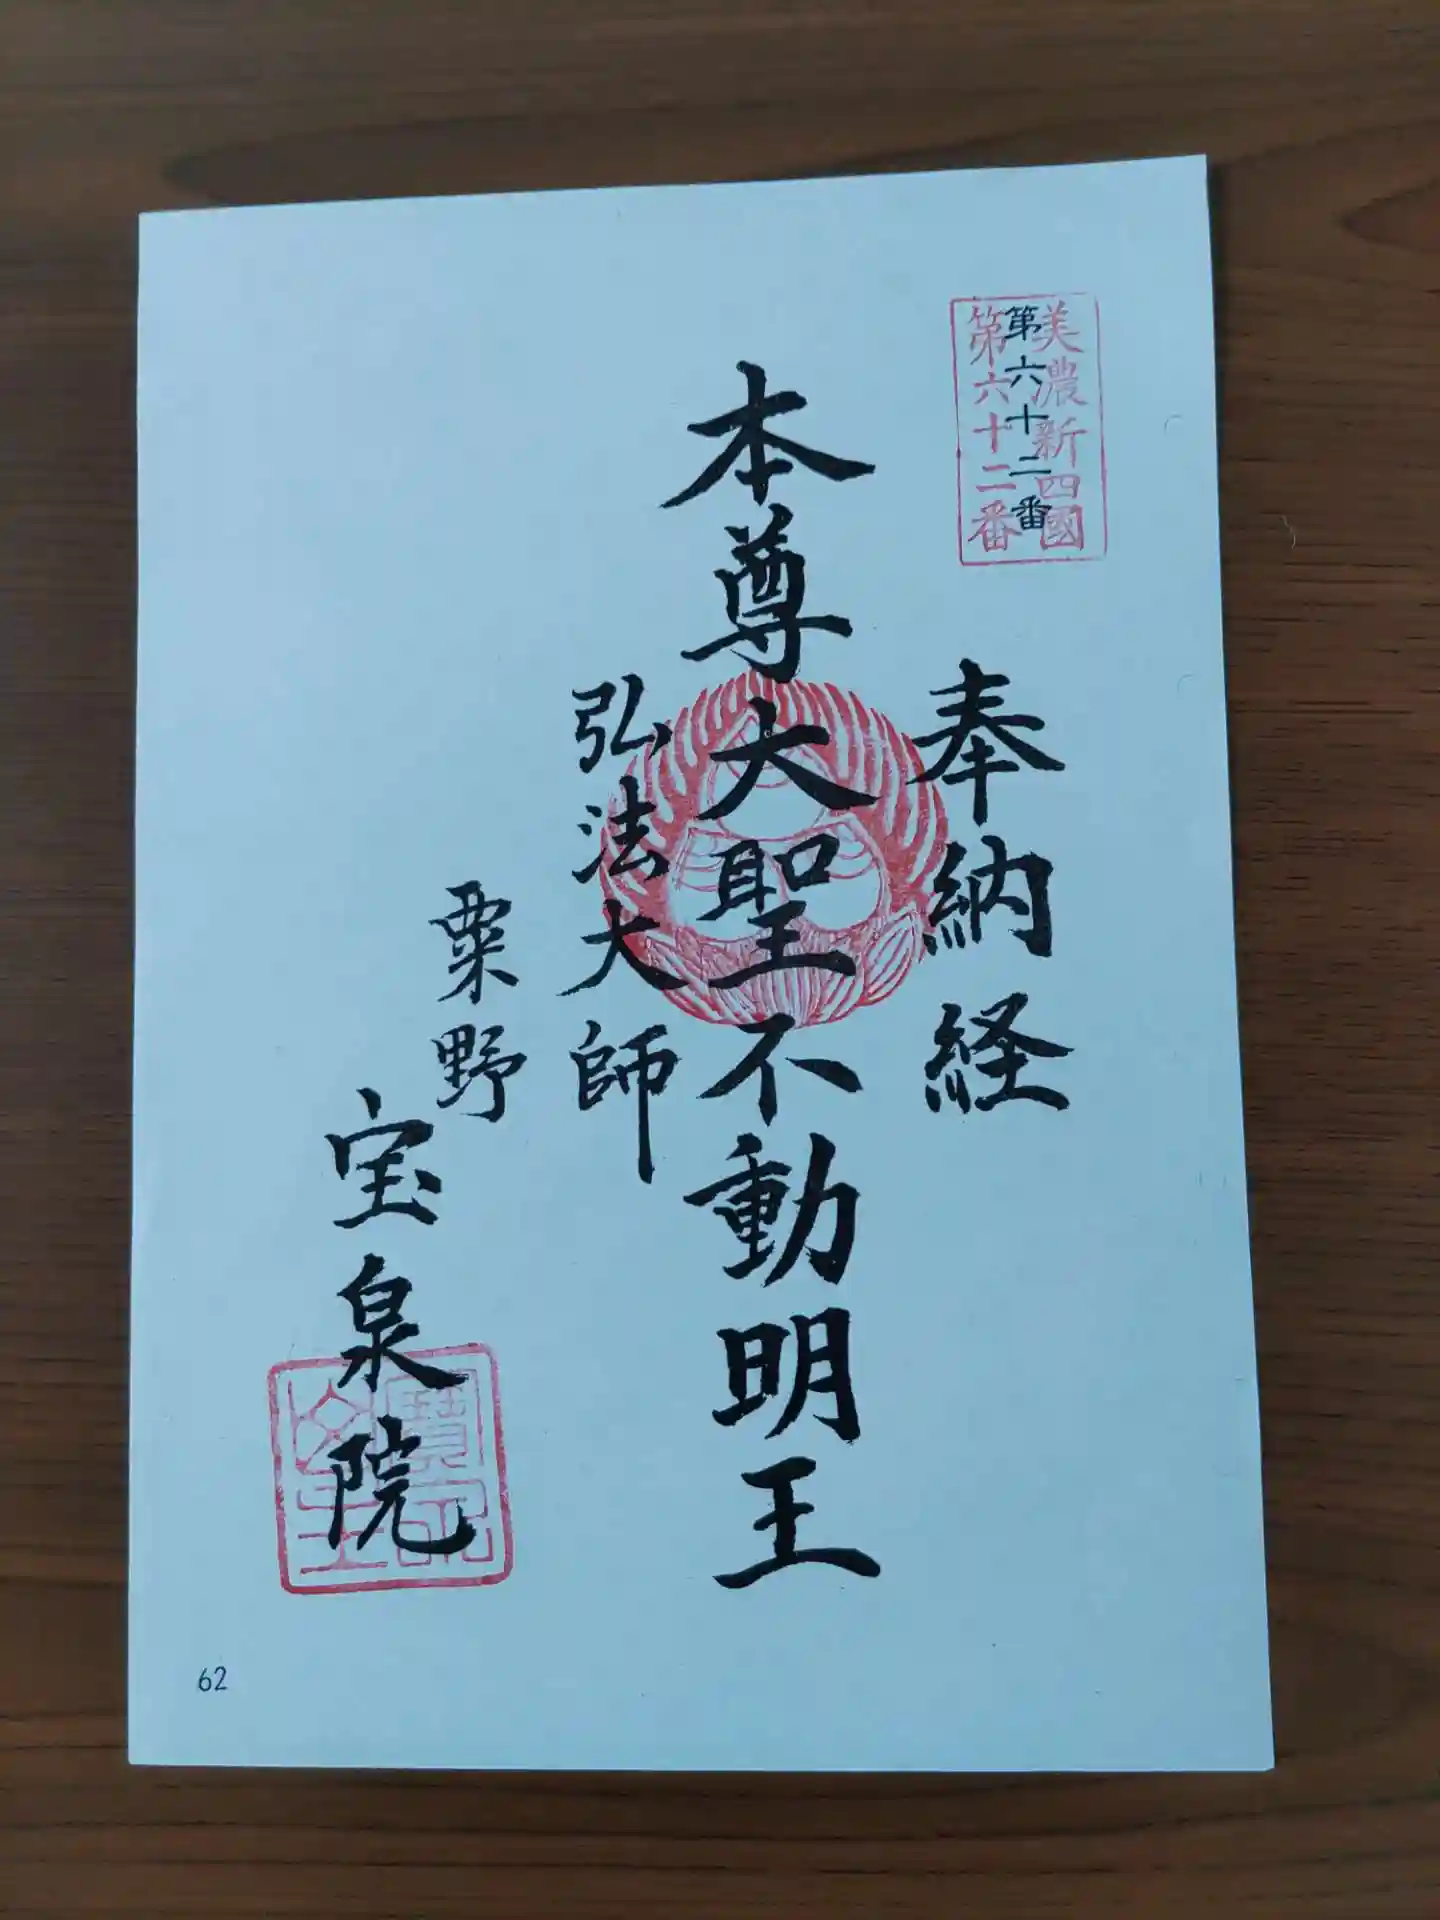 美濃新四國
第六十二番
第六十二番
奉納経
本尊大聖不動明王
弘法大師
粟野
宝泉院
62